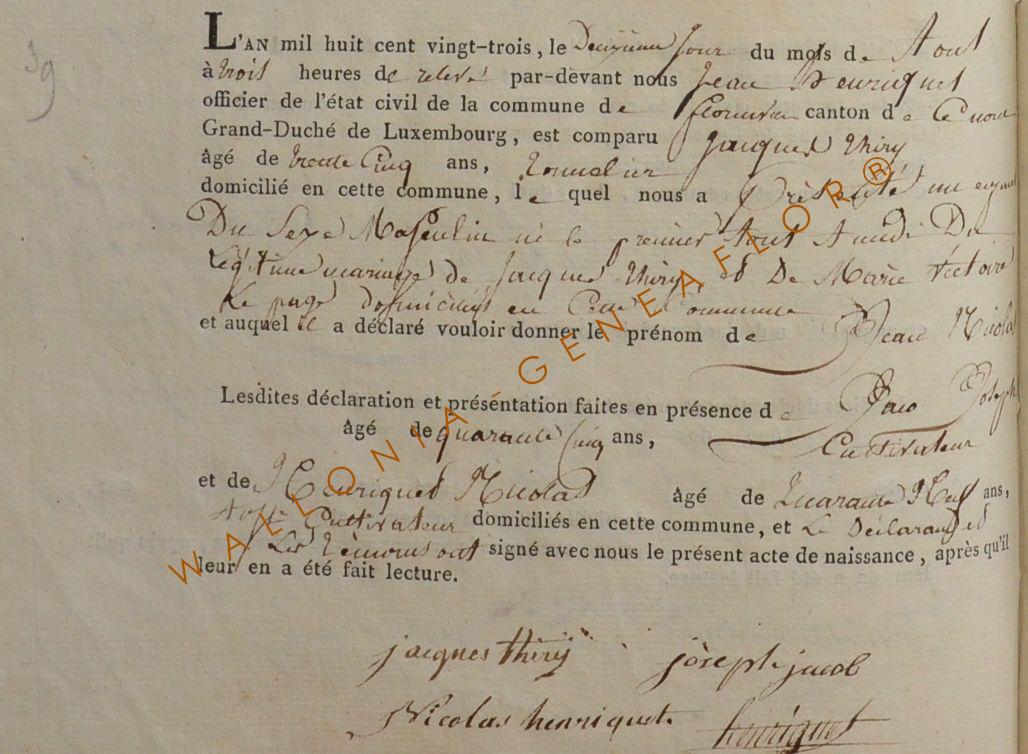 39
L'AN mil huit cent vingt-trois, le Deuxieme jour du mois de Aout
à trois heures de relevé par-devant nous Jean Henriquet
officier de l'état civil de la commune de canton de
Grand-Duché de Luxembourg, est comparu Jacques Thiry
âgé de trente Cinq ans,
domicilié en cette commune, le quel nous a présenté un enfant
Du Sexe Masculin né le premier Aout A midi Du
Légitime mariage de Jacques Thiry et De Marie Victoire
Le page domiciliés en Cette Commune
et auquel il a déclaré vouloir donner le prénom de Jean Nicolas
Lesdites déclaration et présentation faites en présence de Joseph
âgé de quarante Cinq ans, Cultivateur
et de Henriquet Nicolas âgé de Quarante Neuf ans,
Aussi Cultivateur domiciliés en cette commune, et Le Déclarant et
Les témoins ont signé avec nous le présent acte de naissance, après qu'il
leur en a été fait lecture.
jacques thiry josèph jacob
Nicolas henriquet henriquet
WALLONIA-GENEAFLOR®